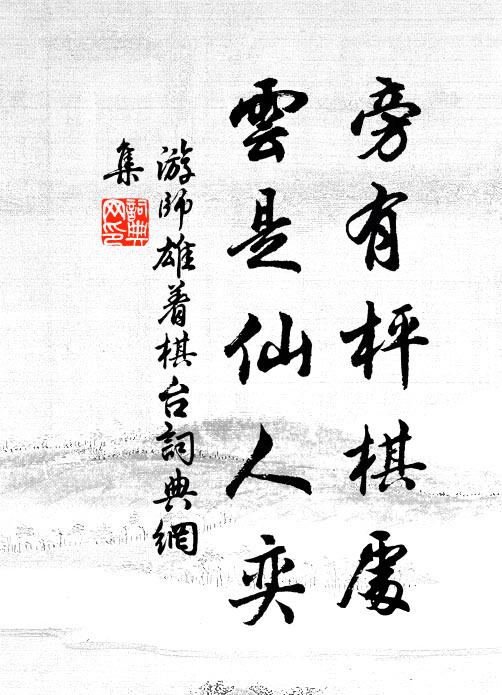 旁有枰棋處
雲是仙人奕
游師雄着棋台詞典網
集
詞典
网印